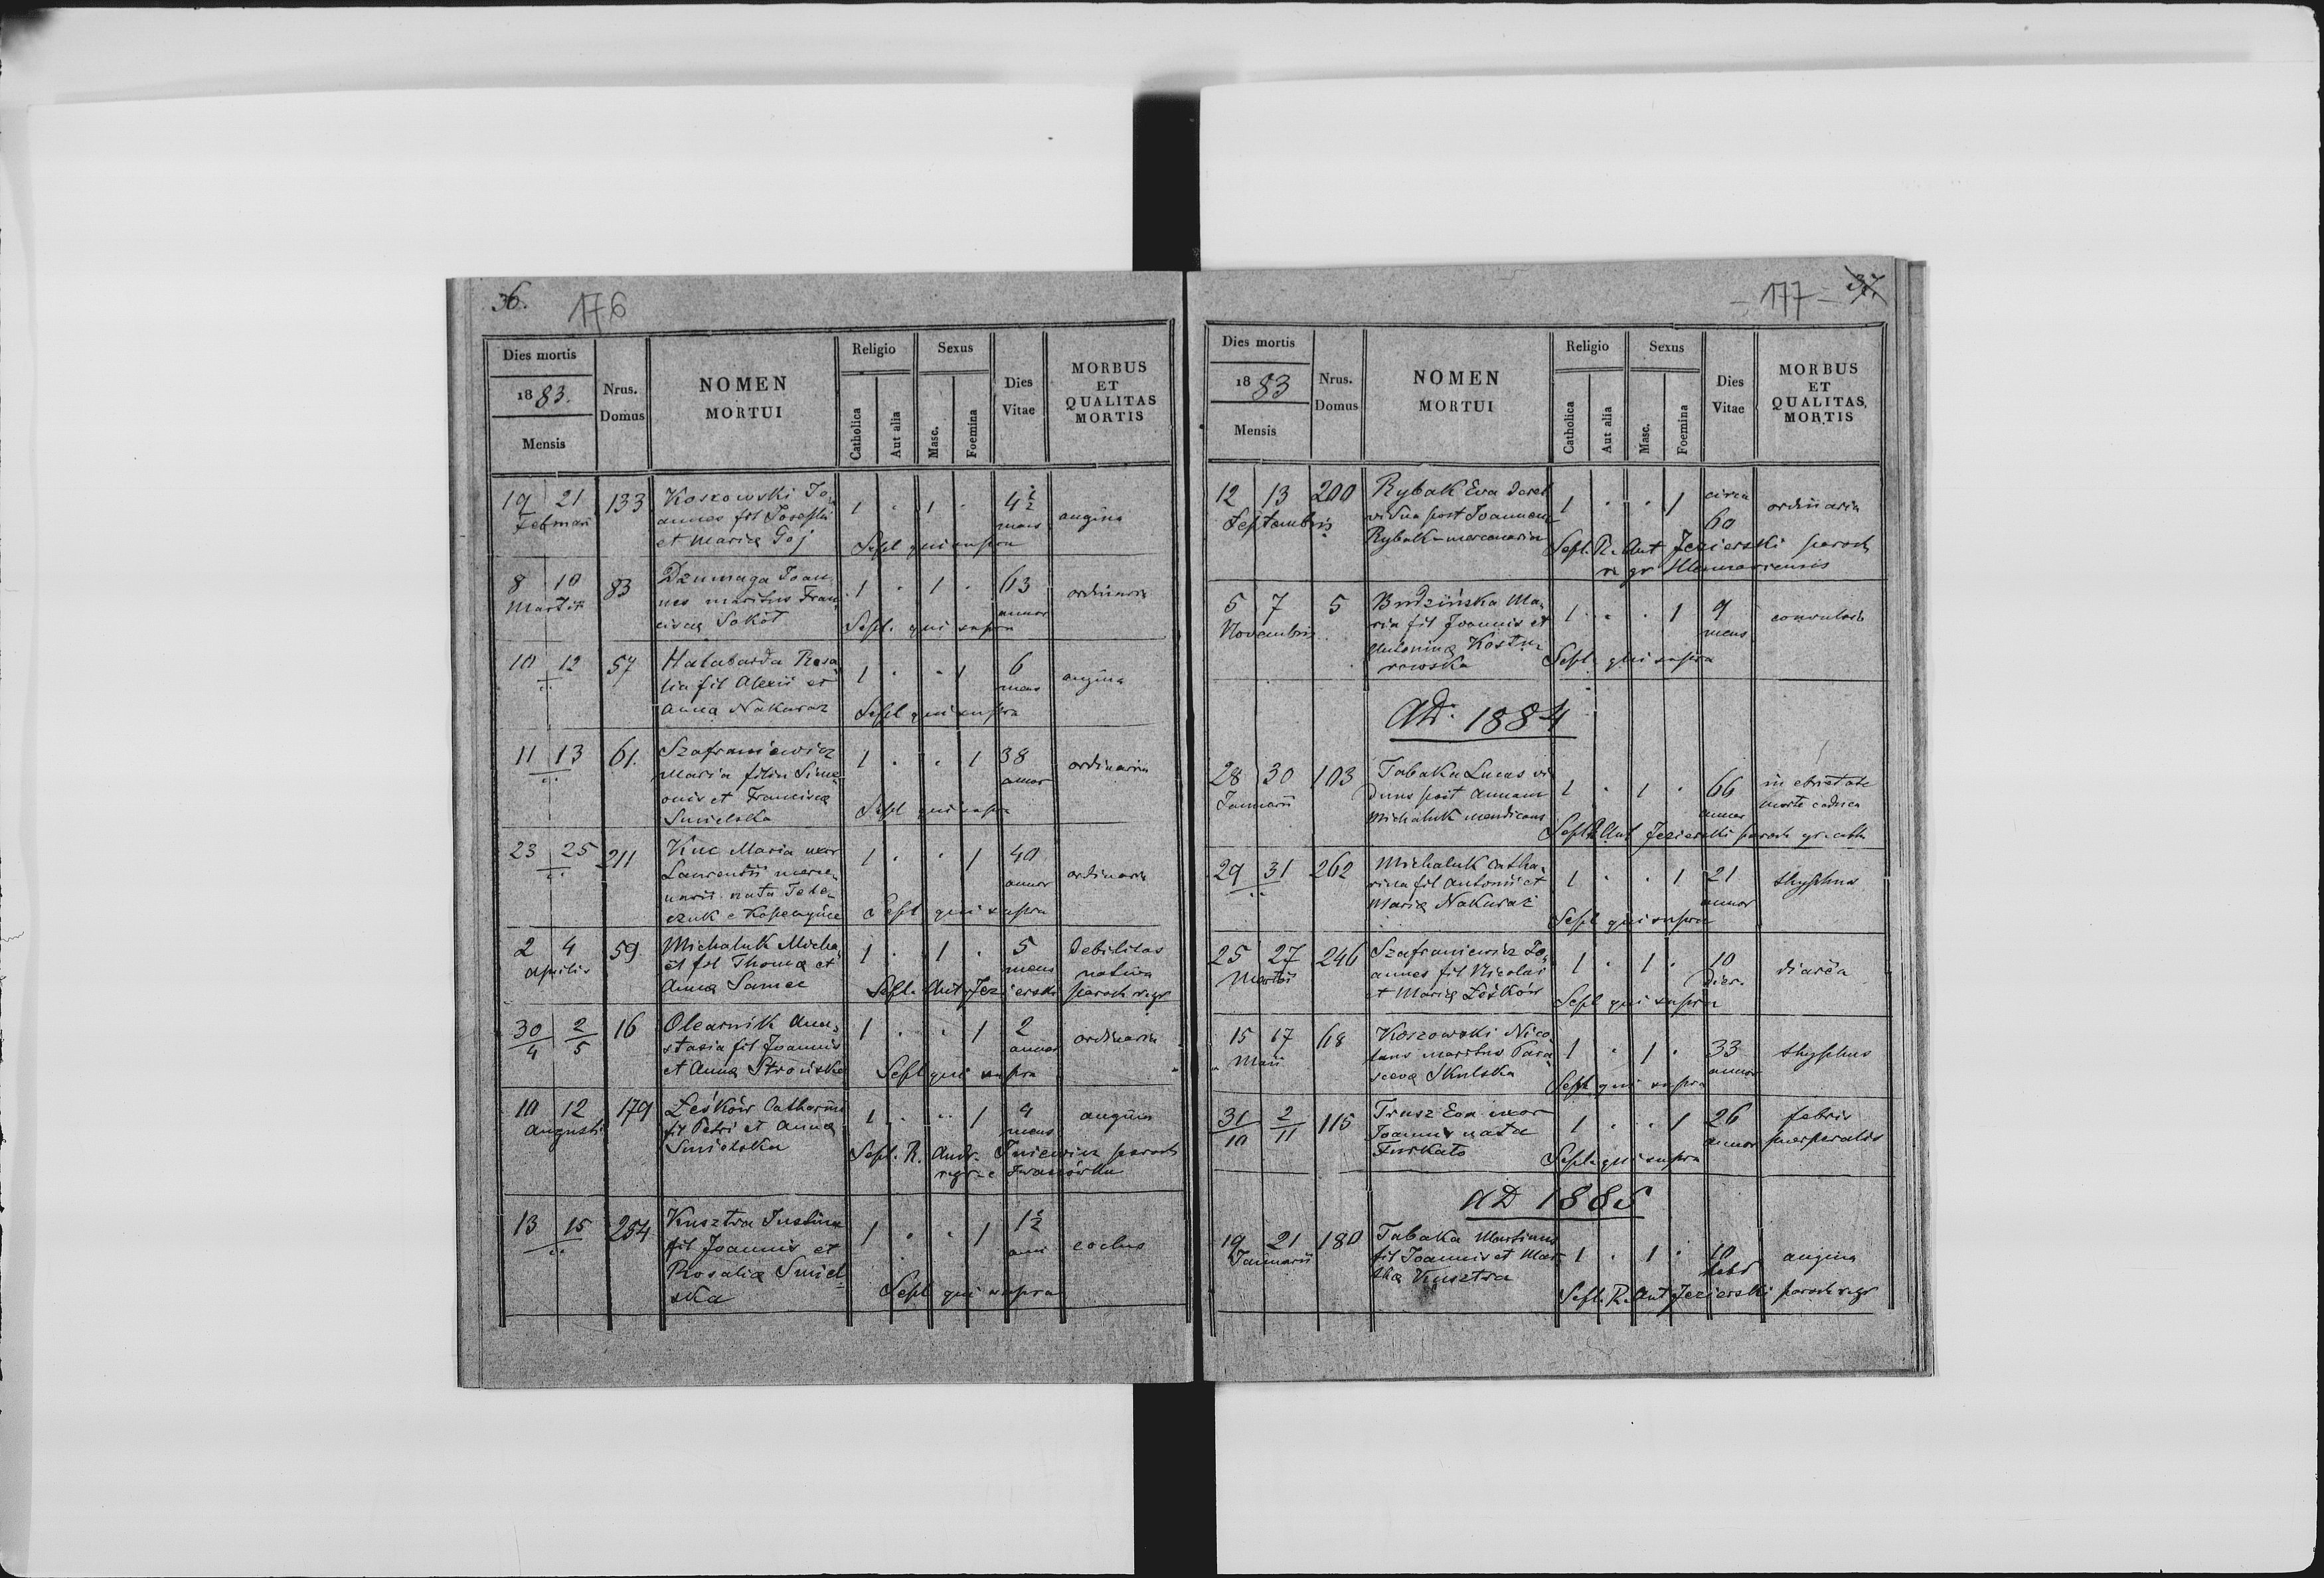 36.
176
Dies mortis
1883.
Mensis
Nrus.
Domus
NOMEN
MORTUI
Religio
Catholica
Aut alia
Sexus
Masc.
Foemina
Dies
Vitae
MORBUS
ET
QUALITAS
MORTIS
19 21 133 Koszowski Jo„
Februarii annes fil Josephi
et Mariæ Goj
1 . 1 . 4½
mens angina
Sepl qui supra
8 10 83
Martii Joan„
nes maritus Fran„
ciscæ Sokot
1 . 1 . 63
annor ordinaria
Sepl. qui supra
10 12 57 Hałabarda Rosa„
lia fil Alexii et
Anna Nakwacz
1 . . 1 6
mens angina
Sepl qui supra
11 13 61. Szafraniewicz
Maria filia Sime„
onis et Francisca
Smielska
1 . . 1 38
annor ordinaria
Sepl qui supra
23 25 211 Kuc Maria uxor
Laurentii merce„
narii nata
1 . . 1 40
annor ordinaria
Sepl qui supra
2 4 59 Michaluk Micha„
Aprilis ël fil Thomæ et
Anna Samec
1 . 1 . 5
mens Debilitas
nativa
Sepl. Ant Jezierski paroch rgr
30/4 2/5 16 Olearnik Ana„
stasia fil Joannis
et Annæ Strońska
1 . . 1 2
annor ordinaria
Sepl qui supra
10 12 179 Leśków Catharina
Augusti fil Petri et Annæ
Smielska
1 . . 1 4
mens angina
Sepl. R. Andr. paroch
rgr e Iwanówka
13 15 254 Kusztra Justina
fil Joannis et
Rosaliæ Smiel„
ska
1 . . 1 1½
anni
Sepl qui supra
- 177 -
37.
Dies mortis
1883
Mensis
Nrus.
Domus
NOMEN
MORTUI
Religio
Catholica
Aut alia
Sexus
Masc.
Foemina
Dies
Vitae
MORBUS
ET
QUALITAS
MORTIS
12 13 200 Rybak Eva
Septembris vidua post Joannem
Rybak mercenaria
1 . . 1 circa
60 ordinaria
Sepl. R. Ant Jezierski paroch
r gr
5 7 5 Budzińska Ma„
Novembris ria fil Joannis et
Antoninæ Kostu„
rowska
1 . . 1 9
mens convulsis
Sepl qui supra
AD. 1884
28 30 103 Tabaka Lucas vi
Januarii duus post Annam
Michaluk mendicans
1 . 1 . 66
annor in ebrietate
morte caduca
Sepl R Ant Jezierski paroch gr. cath
29 31 262 Michaluk Catha„
rina fil Antonii et
Mariæ Nakwacz
1 . . 1 21
annor thyphus
Sepl qui supra
25 27 246 Szafraniewicz Jo„
Martii annes fil Nicolai
et Mariæ Leśków
1 . 1 . 10
dier. diarëa
Sepl qui supra
15 17 68 Koszowski Nico
Maii laus maritus Para„
scevæ Skulska
1 . 1 . 33
annor thyphus
Sepl qui supra
31/10 2/11 115 Trusz Eva uxor
Joannis nata
Furkało
1 . . 1 26
annor febris
puerperalis
Sepl. qui supra
AD 1885
19 21 180 Tabaka Martinus
Januarii fil Joannis et Mar„
thæ Kusztra
1 . 1 . 10
hebd angina
Sepl. R. Ant Jezierski paroch rgr